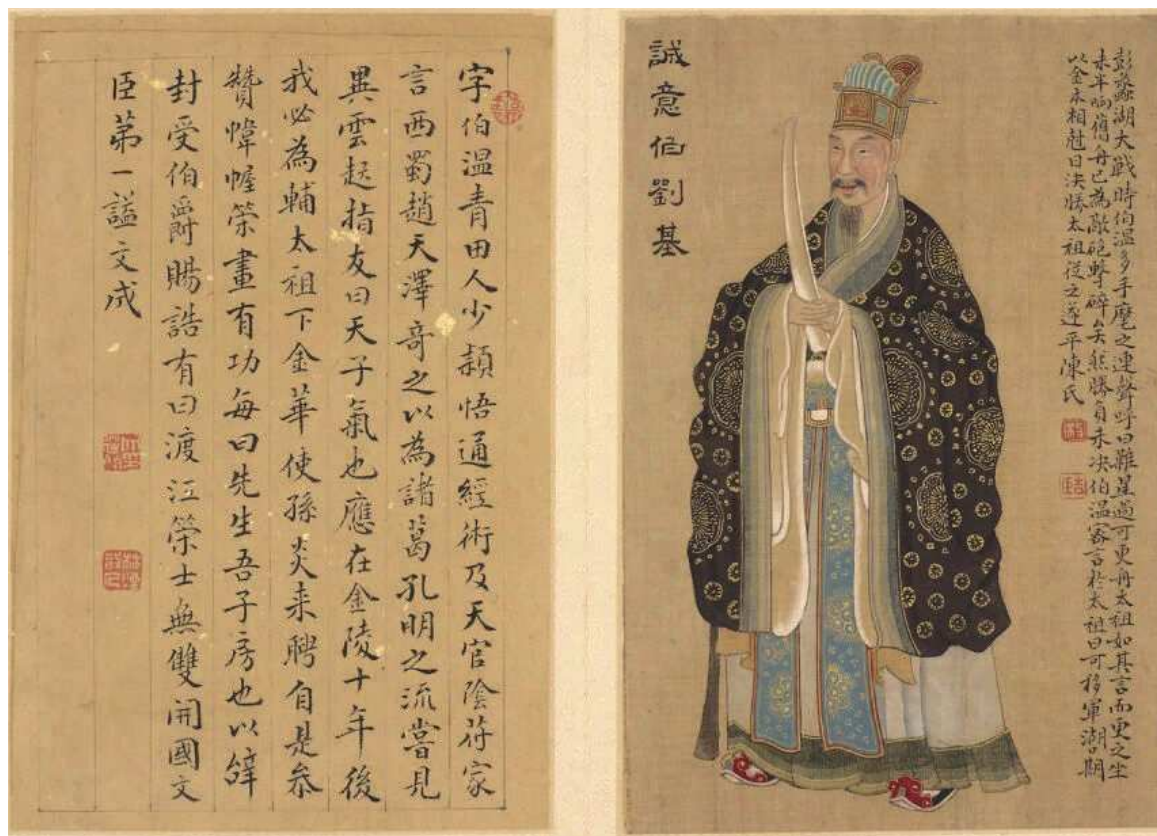 彭蠡湖大戰時伯溫多手麾之連聲呼曰難星過可更舟太祖如其言而更之坐
未半晌舊舟已為敵砲擊碎矣然勝負未決伯溫密言於太祖曰可移軍湖口期
以金木相尅日決勝太祖從之遂平陳氏
誠意伯劉基
字伯溫青田人少穎悟通經術及天官陰符家
言西蜀趙天澤奇之以為諸葛孔明之流嘗見
異雲起指友曰天子氣也應在金陵十年後
我必為輔太祖下金華使孫炎来聘自是叅
贊幃幄策畫有功每曰先生吾子房也以
封受伯爵賜誥有曰渡江策士無雙開國文
臣第一謚文成